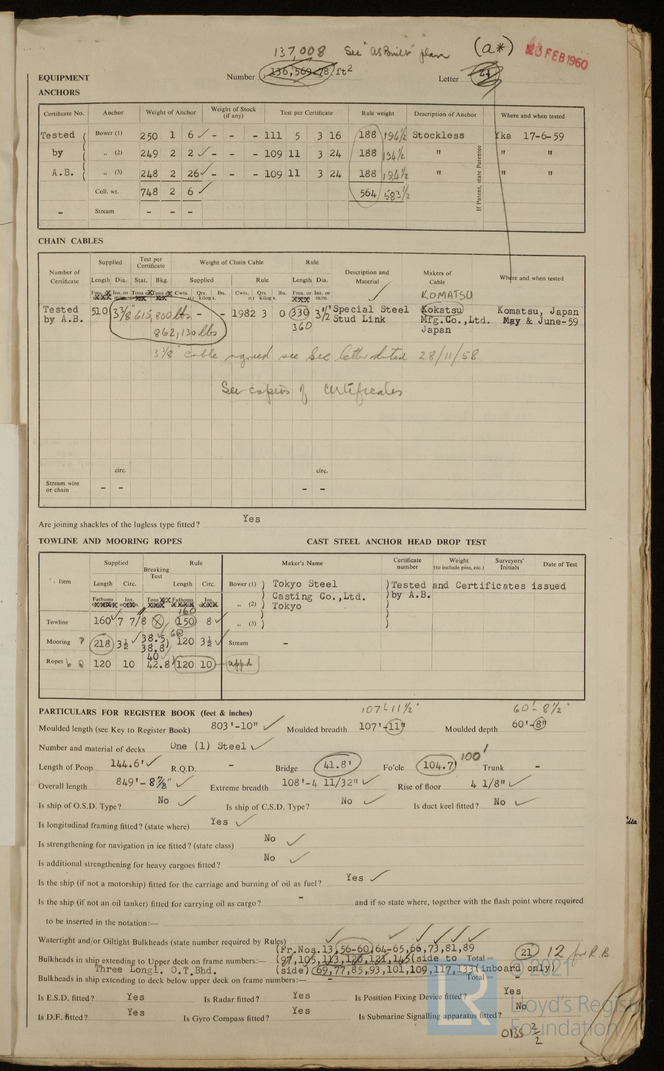 137,008 See "As Built" plan (a*) 23 FEB 1960
EQUIPMENT Number 136,569.78/ft² Letter
ANCHORS
Certificate No. Anchor Weight of Anchor Weight of Stock (if any) Test per Certificate Rule weight Description of Anchor If Patent, state Patentee Where and when tested
Tested Bower (1) 250 1 6 ✓ - - - 111 5 3 16 188 194½ Stockless Yka 17-6-59
by „ (2) 249 2 2 ✓ - - - 109 11 3 24 188 194½ " " "
A.B. „ (3) 248 2 26 ✓ - - - 109 11 3 24 188 194½ " " "
Coll. wt. 748 2 6 ✓ 564 583½
- Stream - - -
CHAIN CABLES
Number of Certificate Supplied Length Dia. Test per Certificate Stat. Bkg. Weight of Chain Cable Supplied Rule Rule Length Dia. Description and Material Makers of Cable Where and when tested
KOMATSU
Tested by A.B. 510 3⅜" 615,800 lbs - - 1982 3 0 330 3½" Special Steel Stud Link Kokatsu Mfg.Co.,Ltd. Japan Komatsu, Japan May & June-59
862,130 lbs 360
3⅜ cable agreed see Sec letter dated 28/11/58
See copies of certificates
circ. circ.
Stream wire or chain - - - -
Are joining shackles of the lugless type fitted? Yes
TOWLINE AND MOORING ROPES CAST STEEL ANCHOR HEAD DROP TEST
Item Supplied Length Circ. Breaking Test Rule Length Circ. Maker's Name Certificate number Weight (to include pins, etc.) Surveyors' Initials Date of Test
Fathoms Ins. Tons Fathoms Ins.
Bower (1) Tokyo Steel Tested and Certificates issued
„ (2) Casting Co.,Ltd. by A.B.
Tokyo
160
Towline 160 ✓ 7 7/8 150 8 ✓ „ (3)
Mooring 218 3½ ✓ 38.5 38.8 120 3½ ✓ Stream -
Ropes 120 10 40 42.8 120 10 appd
PARTICULARS FOR REGISTER BOOK (feet & inches) 107'-11½" 60'-8½"
Moulded length (see Key to Register Book) 803'-10" ✓ Moulded breadth 107'-11" Moulded depth 60'-8"
Number and material of decks One (1) Steel ✓
Length of Poop 144.6' ✓ R.Q.D. - Bridge 41.8' Fo'cle 104.7' 100' Trunk -
Overall length 849'-8⅞" ✓ Extreme breadth 108'-4 11/32" ✓ Rise of floor 4 1/8" ✓
Is ship of O.S.D. Type? No ✓ Is ship of C.S.D. Type? No ✓ Is duct keel fitted? No ✓
Is longitudinal framing fitted? (state where) Yes ✓
Is strengthening for navigation in ice fitted? (state class) No ✓
Is additional strengthening for heavy cargoes fitted? No ✓
Is the ship (if not a motorship) fitted for the carriage and burning of oil as fuel? Yes ✓
Is the ship (if not an oil tanker) fitted for carrying oil as cargo? - and if so state where, together with the flash point where required
to be inserted in the notation:—
Watertight and/or Oiltight Bulkheads (state number required by Rules)
(Fr.Nos.13,56-60,64-65,66,73,81,89 21 12 for R.B
Bulkheads in ship extending to Upper deck on frame numbers:— (97,105,113,120,121,145(side to Total -
Three Longl. O.T.Bhd. (side) 69,77,85,93,101,109,117,133(inboard only)
Bulkheads in ship extending to deck below upper deck on frame numbers:— - Total -
Is E.S.D. fitted? Yes Is Radar fitted? Yes Is Position Fixing Device fitted? Yes
Is D.F. fitted? Yes Is Gyro Compass fitted? Yes Is Submarine Signalling apparatus fitted? No
© 2021
LR
Lloyd's Register
Foundation
0135 2/2